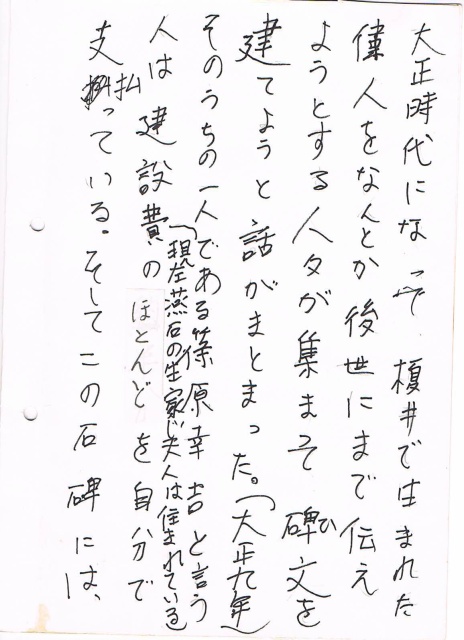 大正時代になって榎井で生まれた
偉人をなんとか後世にまで伝え
ようとする人々が集まって碑文を
ひ
建てようと話がまとまった。(大正九年)
そのうちの一人である篠原幸吉と言う
現在燕石の生家に夫人は住まれている
人は建設費のほとんどを自分で
支払っている。そしてこの石碑には、